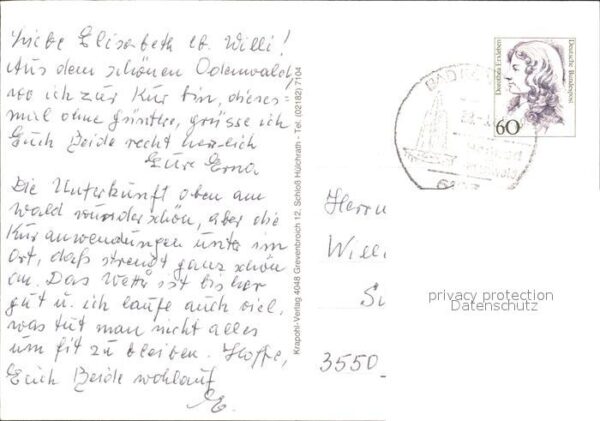 Liebe Elisabeth u. Willi!
Aus dem schönen Odenwald,
wo ich zur Kur bin, dieses=
mal ohne Günter, grüsse ich
Euch Beide recht herzlich
Eure Erna
Die Unterkunft oben am
Wald wunderschön, aber die
Kuranwendungen unten im
Ort, daß strengt ganz schön
an. Das Wetter ist bisher
gut u. ich laufe auch viel,
was tut man nicht alles
um fit zu bleiben. Hoffe,
Euch Beide wohlauf
E.
Krapohl-Verlag 4048 Grevenbroich 12, Schloß Hülchrath - Tel. (02182) 7104
BAD KÖ
Dorothea Erxleben
Deutsche Bundespost
60
Herrn
Will
3550
privacy protection
Datenschutz